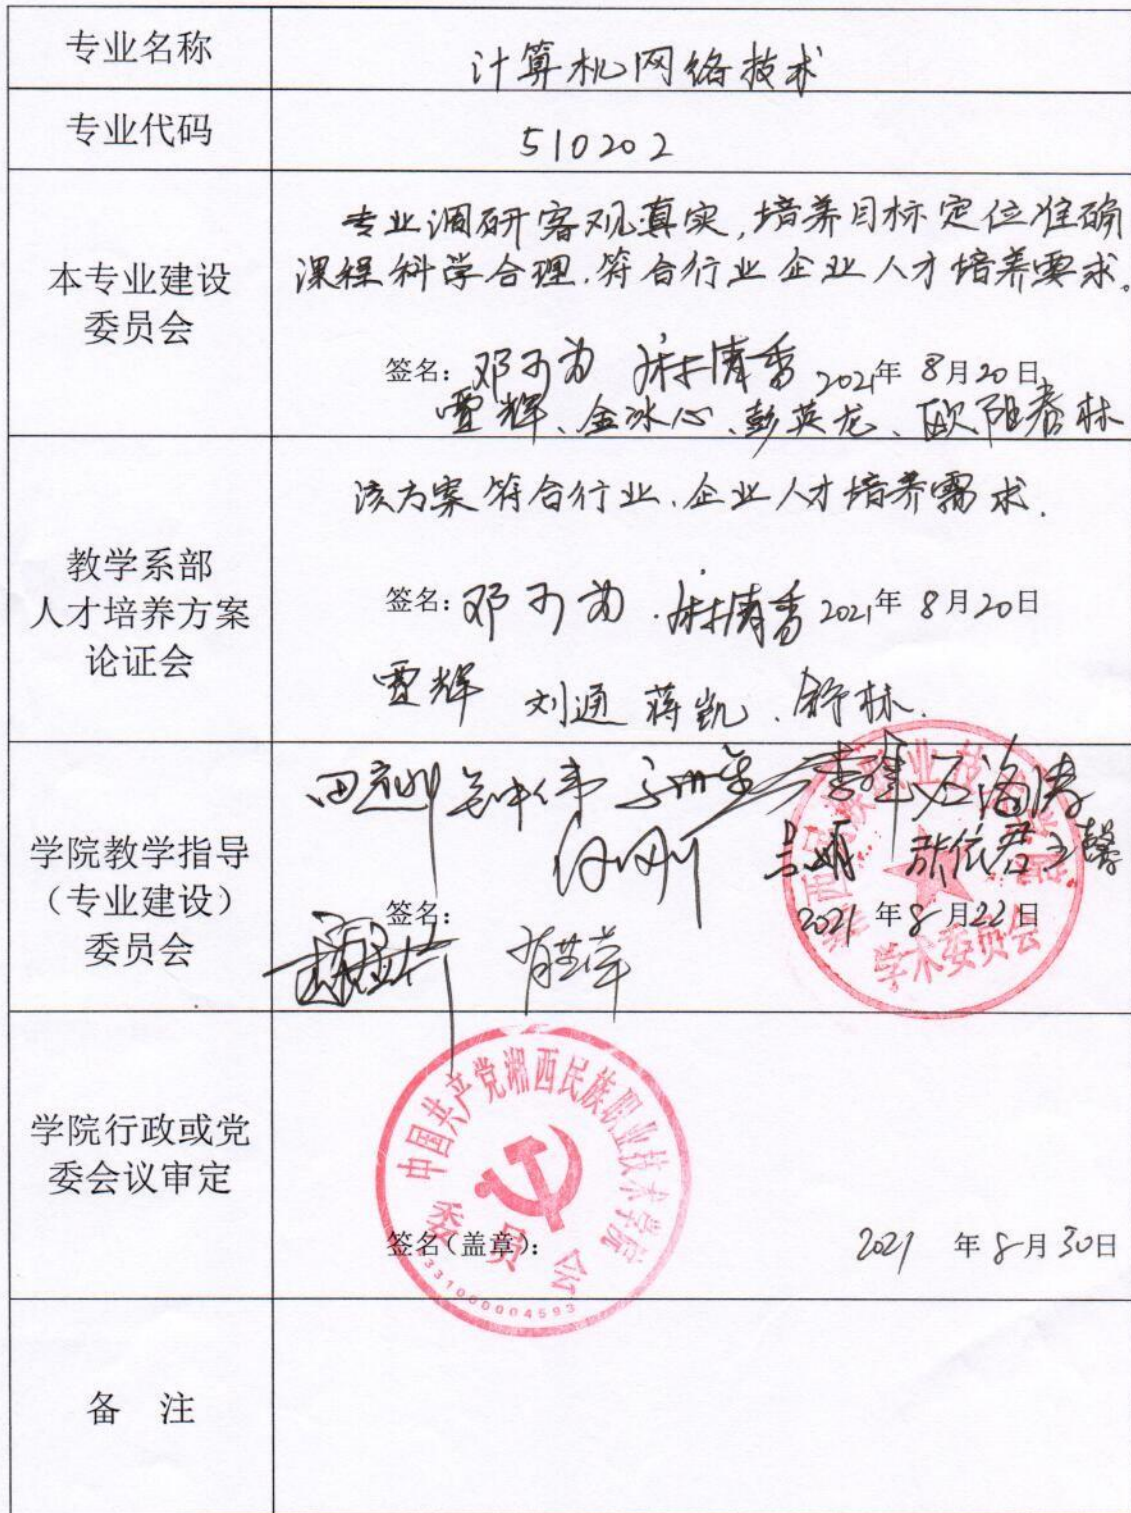 专业名称
计算机网络技术
专业代码
510202
本专业建设
委员会
专业调研客观真实,培养目标定位准确
课程科学合理.符合行业企业人才培养要求。
签名:邓子为 2021年8月20日
金冰心、彭英龙、欧阳春林
教学系部
人才培养方案
论证会
该方案符合行业、企业人才培养需求.
签名:邓子为 2021年8月20日
刘通 蒋凯、舒林.
学院教学指导
(专业建设)
委员会
签名:
2021年8月22日
学术委员会
学院行政或党
委会议审定
中国共产党湘西民族职业技术学院
委员会
签名(盖章):
2021年8月30日
备 注